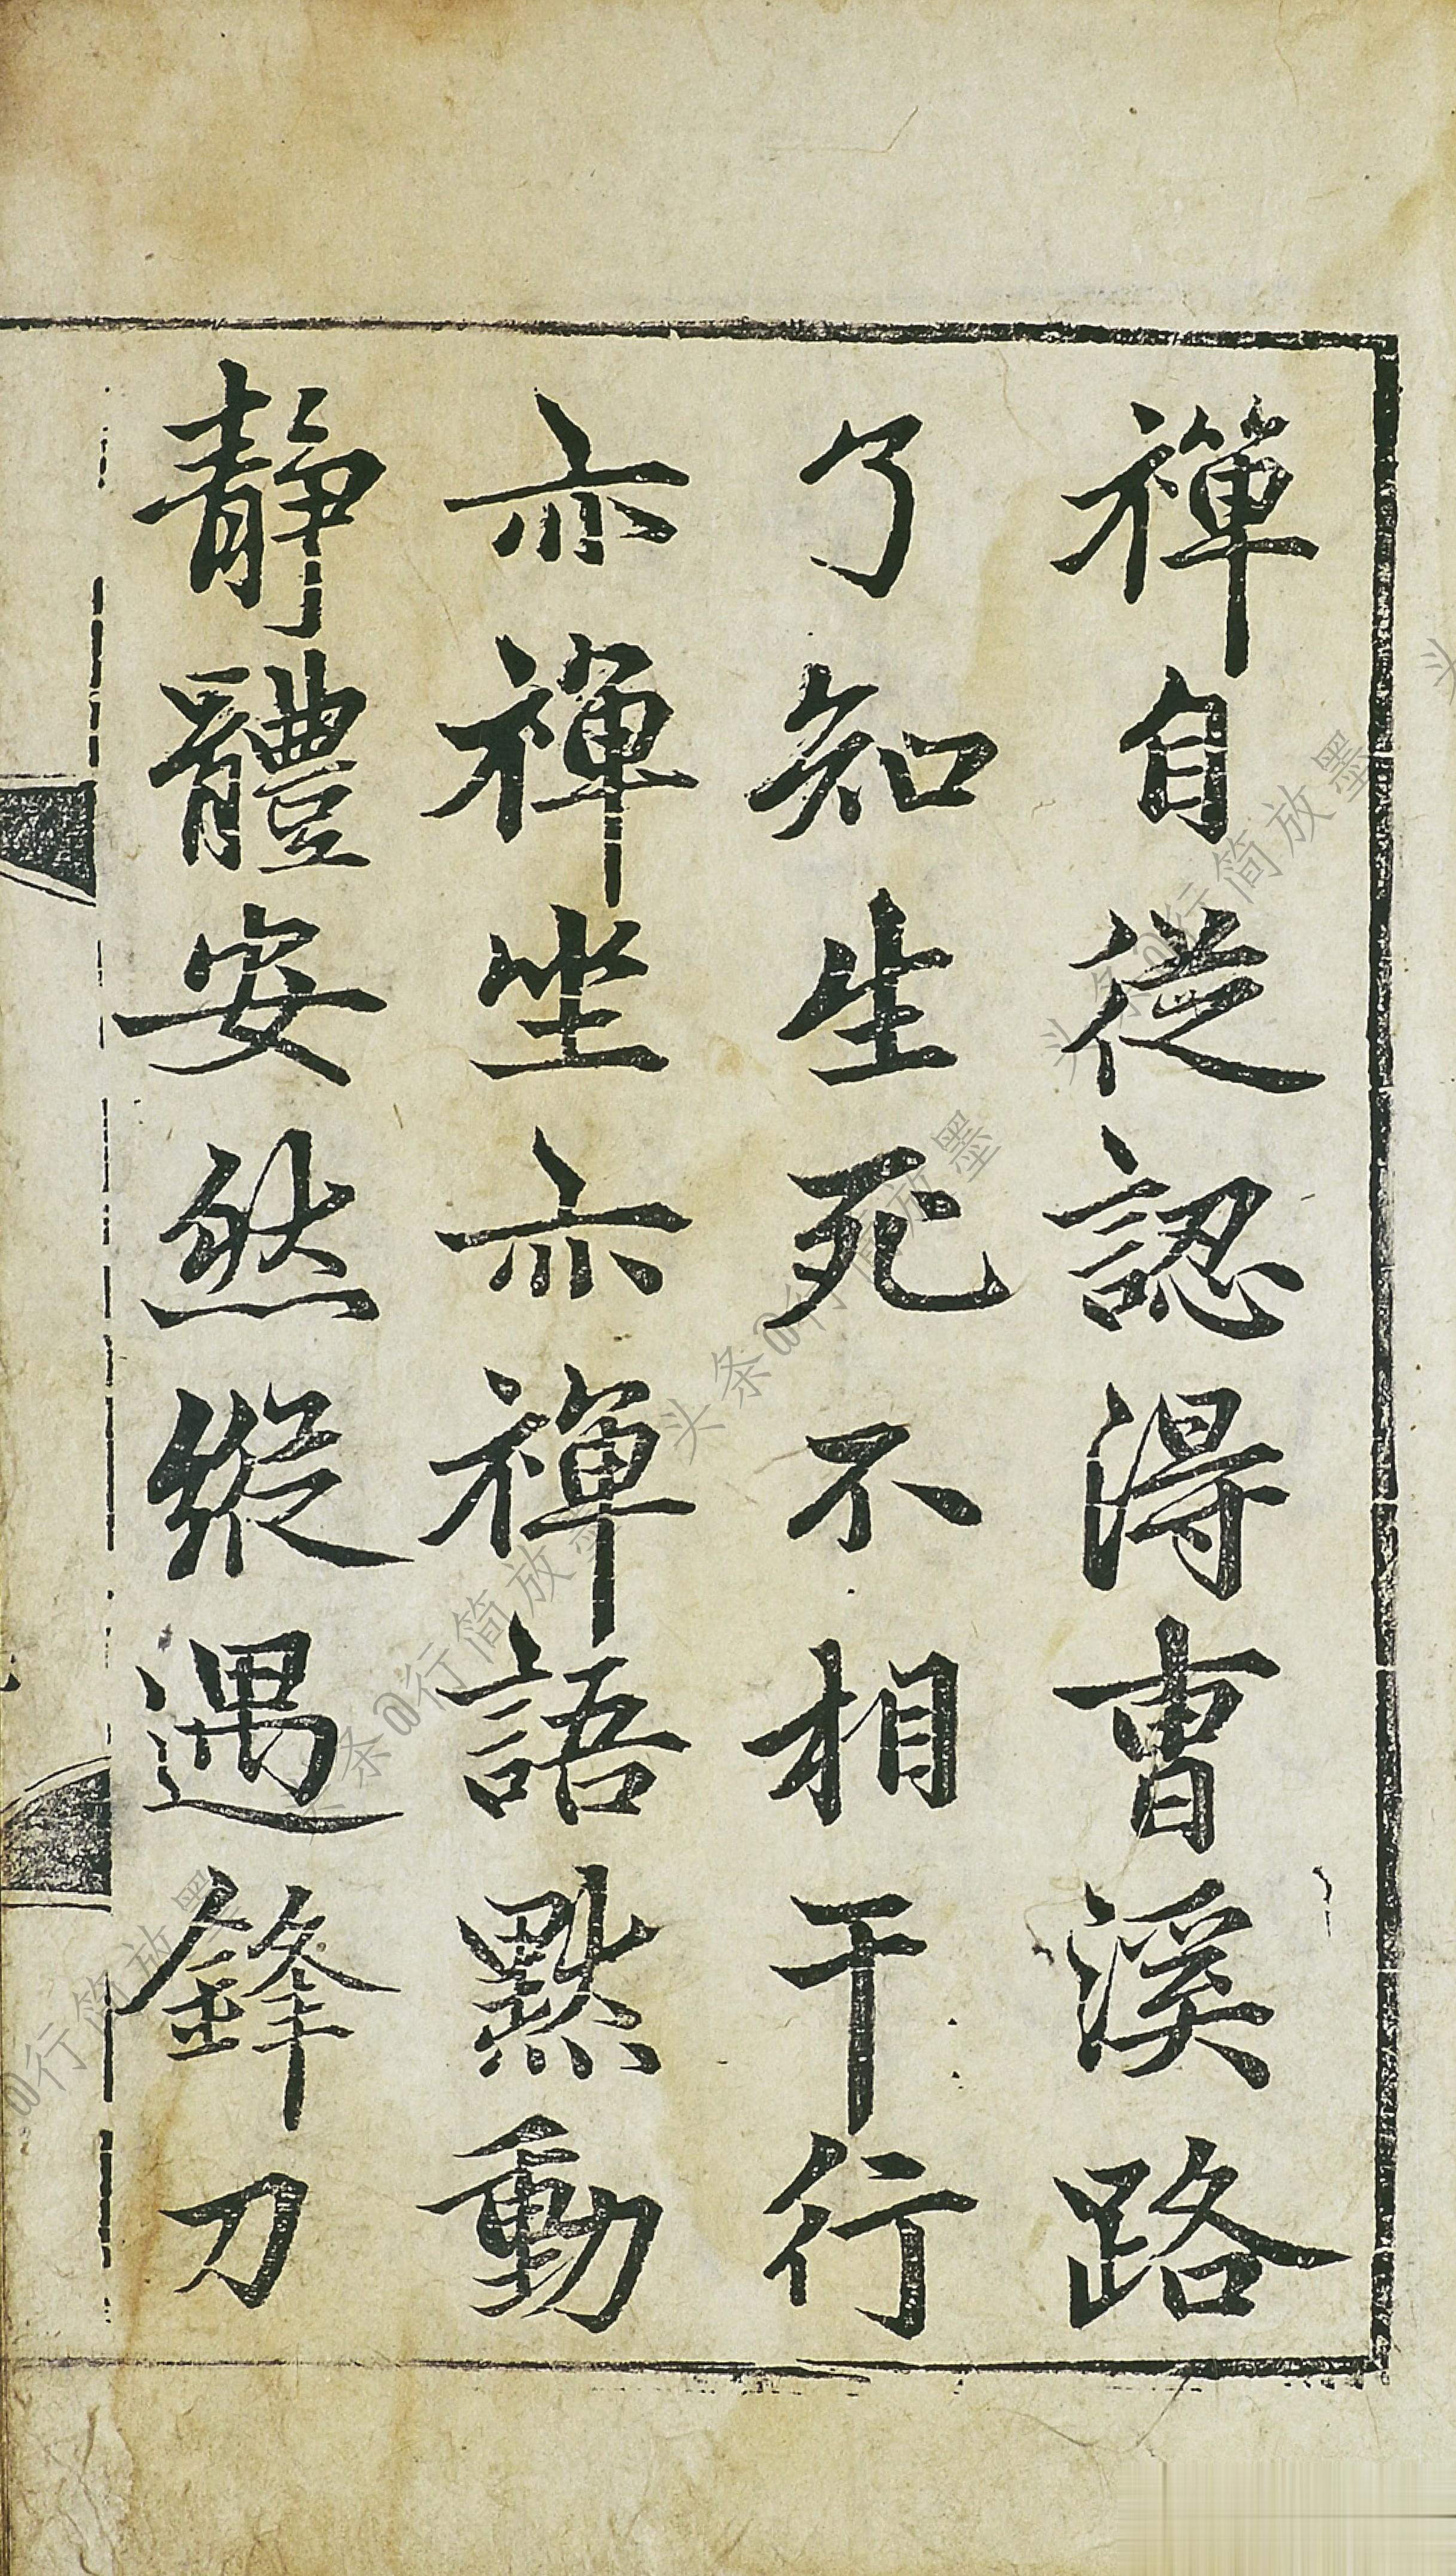 禪自從認得曹溪路
了知生死不相干行
亦禪坐亦禪語默動
靜體安然縱遇鋒刀
头条@行简放墨
头条@行简放墨
头条@行简放墨
@行简放墨
头